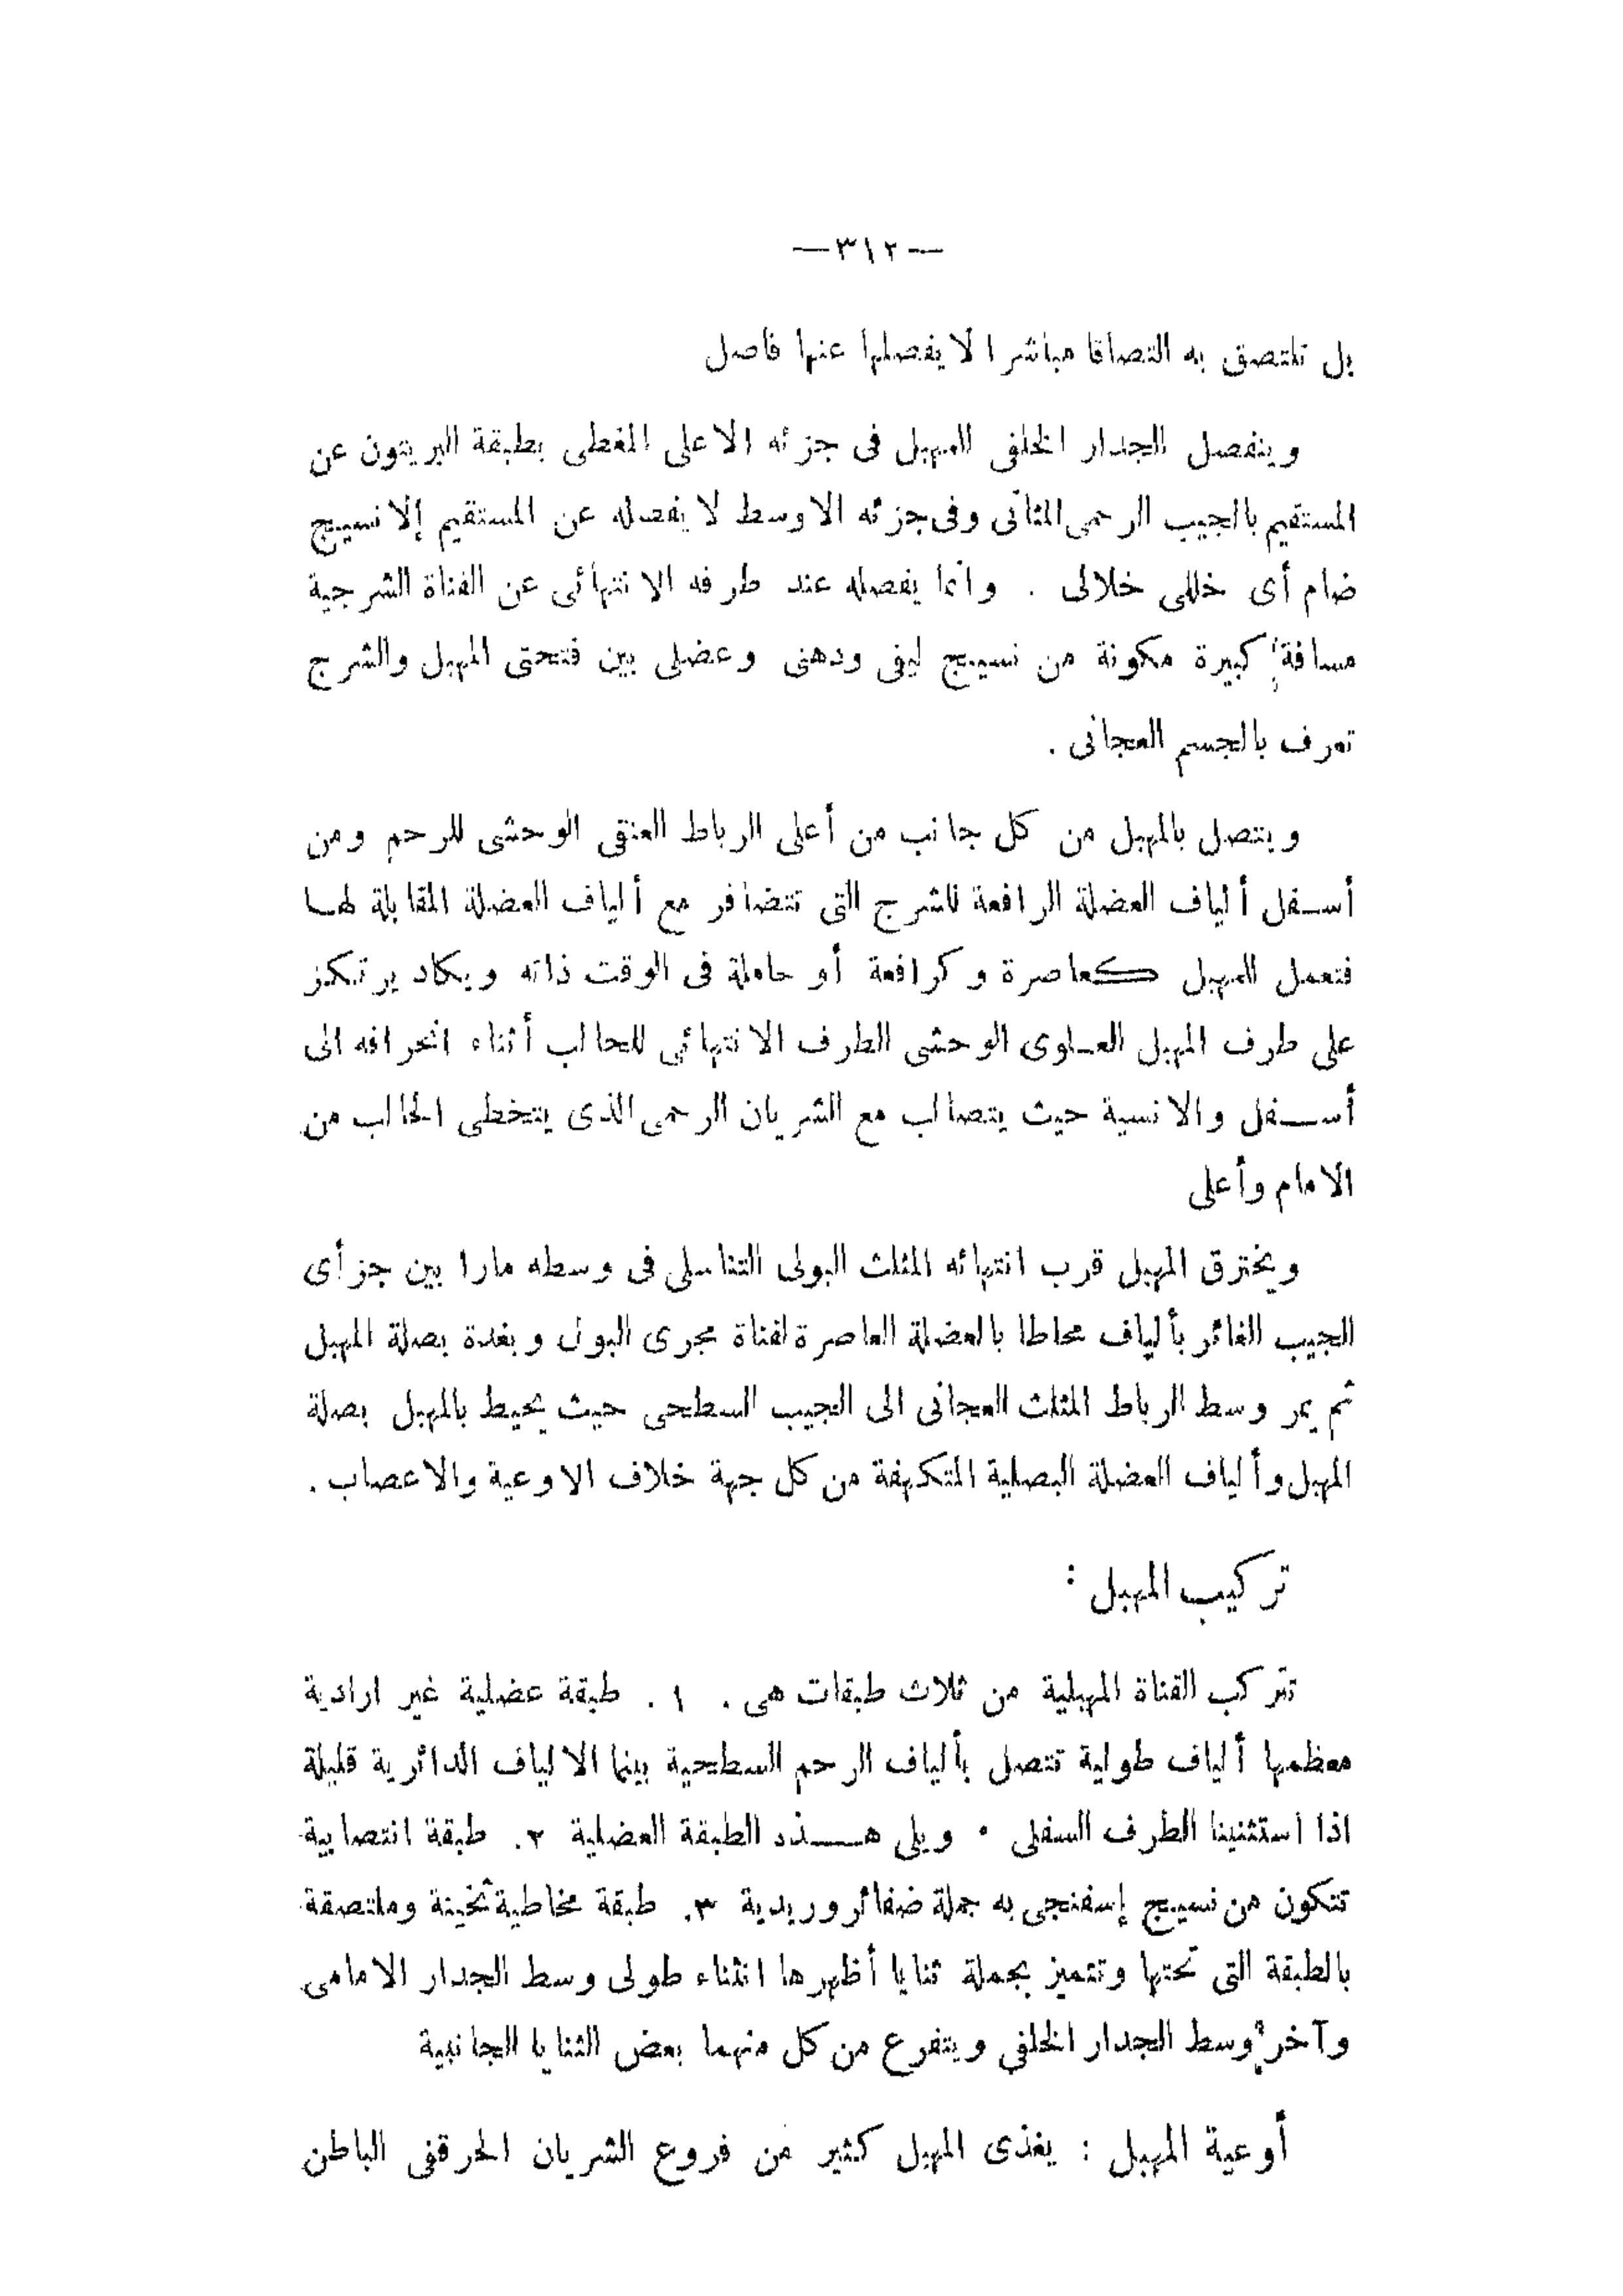 —٣١٢—
بل تلتصق به التصاقا مباشرا لا يفصلها عنها فاصل
وينفصل الجدار الخلفى للمهبل فى جزئه الاعلى المغطى بطبقة البريتون عن
المستقيم بالجيب الرحمى المثانى وفى جزئه الاوسط لا يفصله عن المستقيم إلا نسيج
ضام أى خللى خلالى . وانما يفصله عند طرفه الانتهائى عن القناة الشرجية
مسافة كبيرة مكونة من نسيج ليفى ودهنى وعضلى بين فتحتى المهبل والشرج
تعرف بالجسم العجانى .
ويتصل بالمهبل من كل جانب من أعلى الرباط العنقى الوحشى للرحم ومن
أسفل ألياف العضلة الرافعة للشرج التى تتضافر مع ألياف العضلة المقابلة لها
فتعمل للمهبل كعاصرة وكرافعة أو حاملة فى الوقت ذاته ويكاد يرتكز
على طرف المهبل العلوى الوحشى الطرف الانتهائى للحالب أثناء انحرافه الى
أسفل والانسية حيث يتصالب مع الشريان الرحمى الذى يتخطى الحالب من
الامام وأعلى
ويخترق المهبل قرب انتهائه المثلث البولى التناسلى فى وسطه مارا بين جزأى
الجيب الغائر بألياف محاطا بالعضلة العاصرة لقناة مجرى البول وبغدة بصلة المهبل
ثم يمر وسط الرباط المثلث العجانى الى الجيب السطحى حيث يحيط بالمهبل بصلة
المهبل وألياف العضلة البصلية المتكهفة من كل جهة خلاف الاوعية والاعصاب .
تركيب المهبل :
تتركب القناة المهبلية من ثلاث طبقات هى . ١ . طبقة عضلية غير ارادية
معظمها ألياف طولية تتصل بألياف الرحم السطحية بينما الالياف الدائرية قليلة
اذا استثنينا الطرف السفلى . ويلى هذه الطبقة العضلية ٢. طبقة انتصابية
تتكون من نسيج إسفنجى به جملة ضفائر وريدية ٣. طبقة مخاطية ثخينة وملتصقة
بالطبقة التى تحتها وتتميز بجملة ثنايا أظهرها انثناء طولى وسط الجدار الامامى
وآخر وسط الجدار الخلفى ويتفرع من كل منهما بعض الثنايا الجانبية
أوعية المهبل : يغذى المهبل كثير من فروع الشريان الحرقفى الباطن